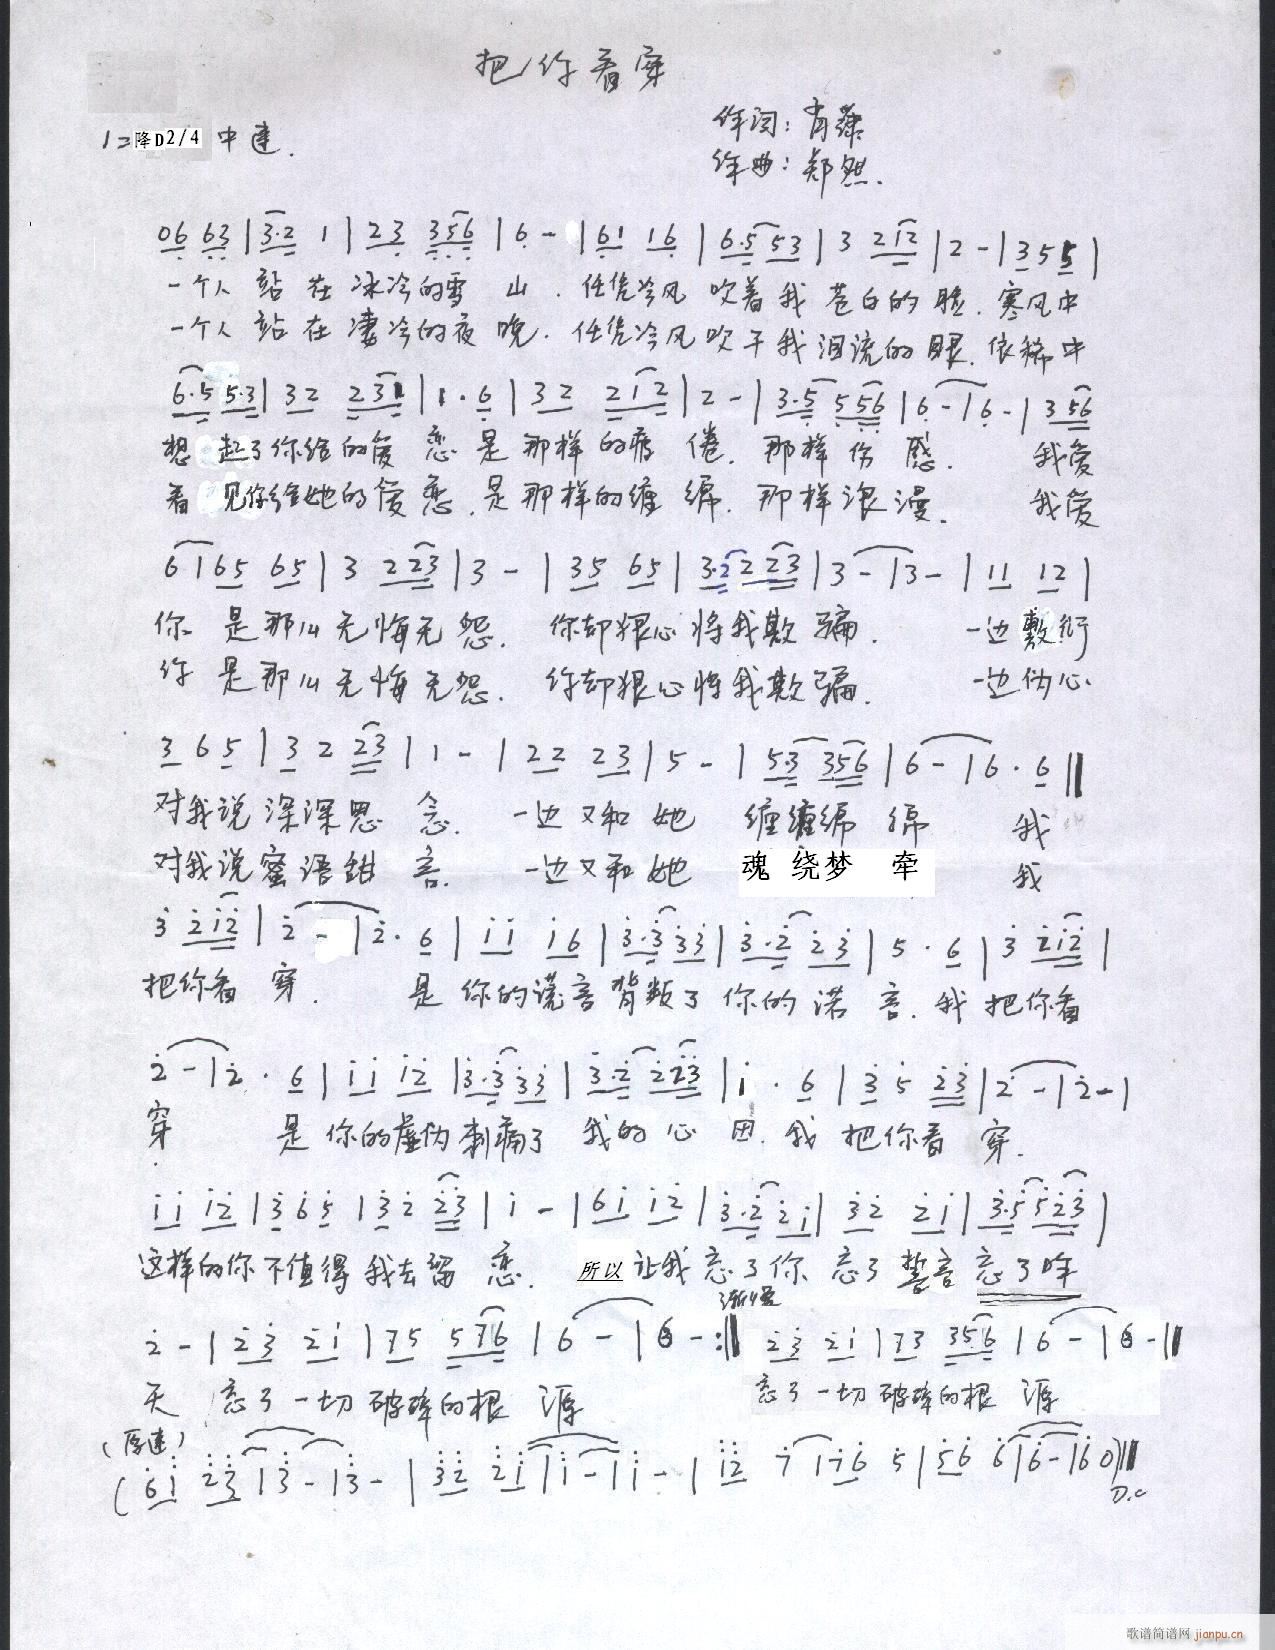 把你看穿
作词：肖
1=降D2/4 中速.
作曲：郑然.
06 63 | 3·2 1 | 23 356 | 6 - | 61 16 | 6·5 53 | 3 212 | 2 - | 3 5 5 |
一个人 站 在 冰冷的雪 山. 任凭冷风 吹着我 苍白的脸. 寒风中
一个人 站 在 凄冷的夜 晚. 任凭冷风吹干我泪流的眼. 依稀中
6·5 5·3 | 32 231 | 1· 6 | 32 212 | 2 - | 3·5 556 | 6 - | 6 - | 3 56
想 起了你给的爱 恋 是 那样 的疲 倦. 那样 伤 感. 我爱
看 见你给她的爱 恋. 是 那样的缠 绵. 那样 浪 漫. 我爱
6 | 65 65 | 3 223 | 3 - | 35 65 | 3·2 2 23 | 3 - | 3 - | 11 12 |
你 是那么无悔无 怨. 你却狠心将我欺 骗. 一边敷衍
你 是那么无悔无 怨. 你却狠心将我欺 骗. 一边伪心
3 6 5 | 3 2 23 | 1 - | 22 23 | 5 - | 5·3 356 | 6 - | 6· 6 ‖
对我说深深思 念. 一边又和 她 缠缠绵 绵 我
对我说蜜语甜 言. 一边又和她 魂 绕梦 牵 我
3 212 | 2 - | 2· 6 | 11 16 | 3·3 33 | 3·2 23 | 5· 6 | 3 212 |
把你看 穿. 是 你的谎言背叛了 你的 诺 言. 我 把你看
2 - | 2· 6 | 11 12 | 3·3 33 | 3·2 223 | 1· 6 | 3 5 23 | 2 - | 2 - |
穿 是 你的虚伪刺痛了 我的 心 田. 我 把你看 穿.
11 12 | 3 6 5 | 3 2 23 | 1 - | 61 12 | 3·2 21 | 32 21 | 3·5 523 |
这样的你不值得 我去留 恋. 所以 让我 忘了你 忘了 誓言 忘了昨
渐慢
2 - | 23 21 | 75 576 | 6 - | 6 - :‖ 23 21 | 73 356 | 6 - | 6 - ‖
天 忘了一切破碎的根 源 忘了一切破碎的根 源
(原速)
( 61 23 | 3 - | 3 - | 32 21 | 1 - | 1 - | 12 7 | 76 5 | 56 6 | 6 - | 6 0 ) ‖
D.C
歌谱简谱网 jianpu.cn